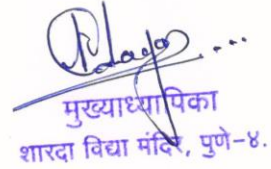 मुख्याध्यापिका
शारदा विद्या मंदिर, पुणे-४.